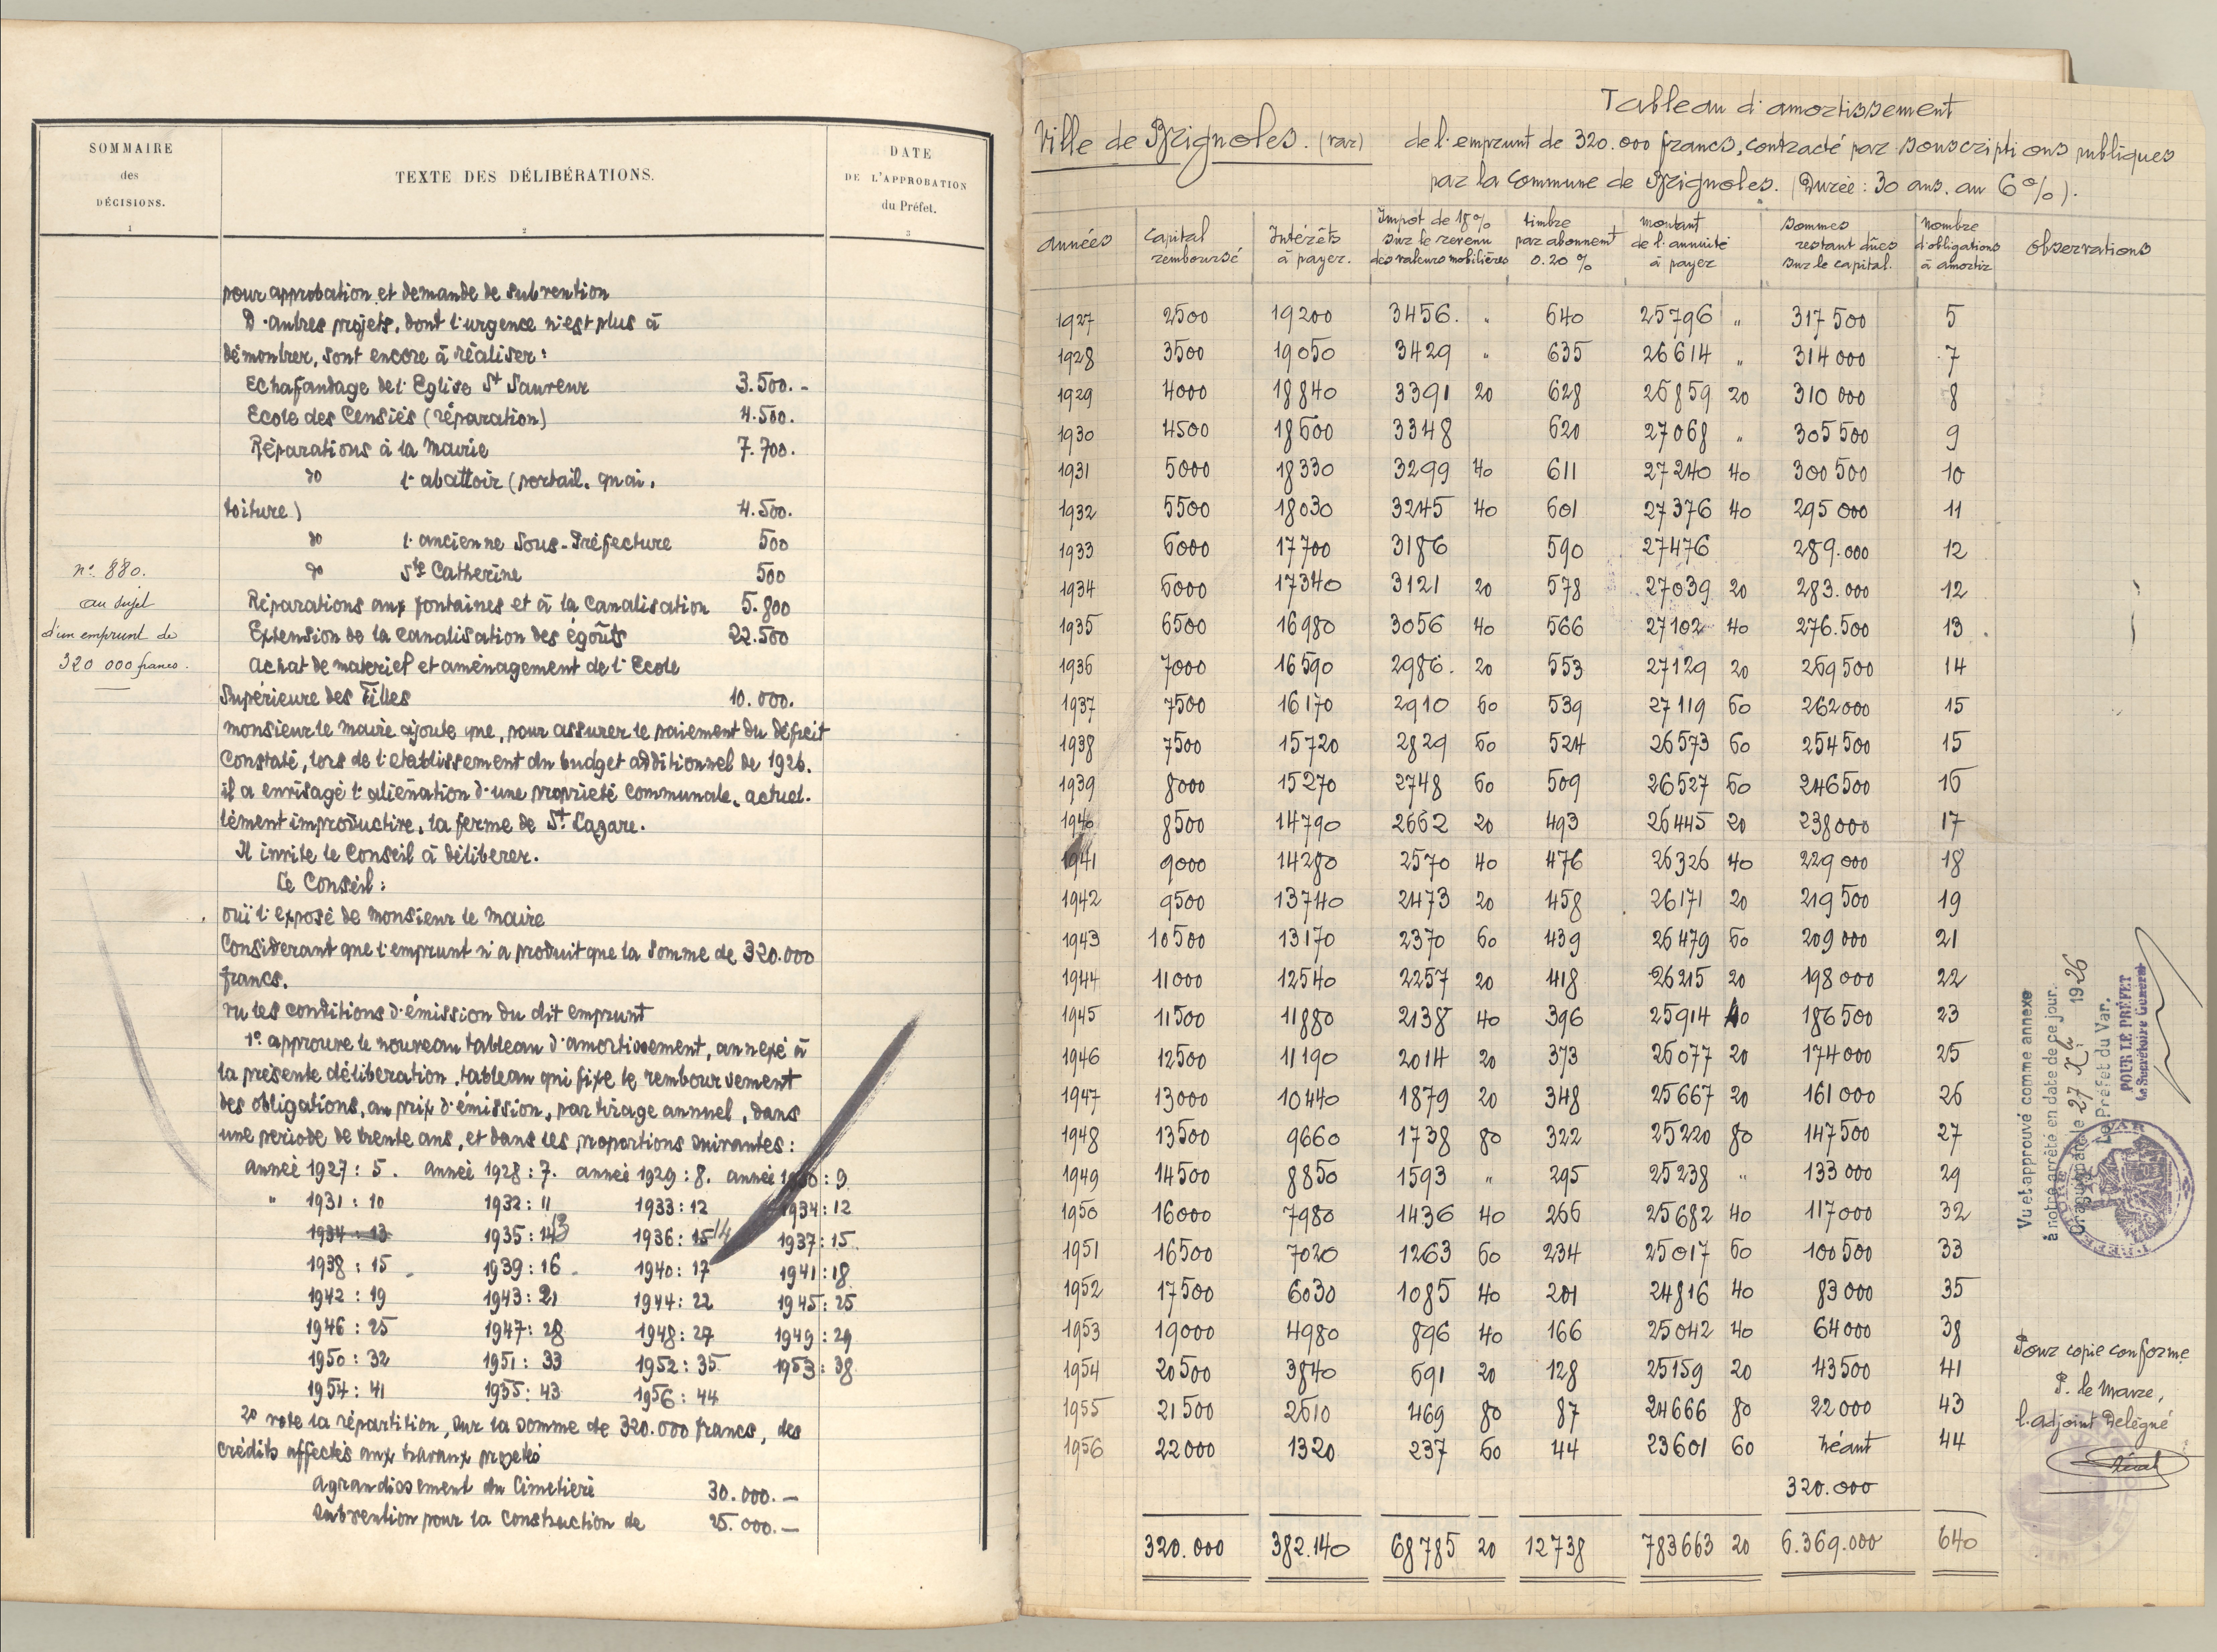 SOMMAIRE
des
DÉCISIONS.
1
TEXTE DES DÉLIBÉRATIONS.
2
DATE
DE L'APPROBATION
du Préfet.
3
n° 880.
au sujet
d'un emprunt de
320 000 francs.
pour approbation et demande de subvention
D'autres projets, dont l'urgence n'est plus à
démontrer, sont encore à réaliser:
Echafaudage de l'Eglise St Sauveur 3.500.-
Ecole des Censiés (réparation) 4.500.
Réparations à la Mairie 7.700.
do l'abattoir (portail, quai,
toiture) 4.500.
do l'ancienne Sous-Préfecture 500
do Ste Catherine 500
Réparations aux fontaines et à la canalisation 5.800
Extension de la canalisation des égoûts 22.500
achat de materiel et aménagement de l'Ecole
Supérieure des Filles 10.000.
monsieur le maire ajoute que, pour assurer le paiement du déficit
constaté, lors de l'etablissement du budget additionnel de 1926.
il a envisagé l'aliénation d'une propriété communale, actuel-
lement improductive, la ferme de St Lazare.
Il invite le Conseil à délibérer.
Le Conseil:
ouï l'exposé de Monsieur le Maire
Considerant que l'emprunt n'a produit que la somme de 320.000
francs.
vu les conditions d'émission du dit emprunt
1° approuve le nouveau tableau d'amortissement, annexé à
la présente délibération, tableau qui fixe le remboursement
des obligations, au prix d'émission, par tirage annuel, dans
une période de trente ans, et dans les proportions suivantes:
année 1927: 5. année 1928: 7. année 1929: 8. année 1930: 9
" 1931: 10 1932: 11 1933: 12 1934: 12
1934: 13 1935: 13 1936: 15 14 1937: 15
1938: 15 1939: 16 1940: 17 1941: 18
1942: 19 1943: 21 1944: 22 1945: 25
1946: 25 1947: 28 1948: 27 1949: 29
1950: 32 1951: 33 1952: 35 1953: 38
1954: 41 1955: 43 1956: 44
2° vote la répartition, sur la somme de 320.000 francs, des
crédits affectés aux travaux projetés
agrandissement du Cimetière 30.000.—
Subvention pour la construction de 25.000.—
Tableau d'amortissement
Ville de Brignoles. (var) de l'emprunt de 320.000 francs, contracté par souscriptions publiques
par la Commune de Brignoles. (Durée: 30 ans. au 6%).
années | Capital remboursé | Intérêts à payer. | Impot de 18% sur le revenu des valeurs mobilières | timbre par abonnemt 0.20 % | montant de l'annuité à payer | Sommes restant dûes sur le capital. | Nombre d'obligations à amortir | Observations
1927 2500 19200 3456. " 640 25796 " 317500 5
1928 3500 19050 3429 " 635 26614 " 314000 7
1929 4000 18840 3391 20 628 26859 20 310000 8
1930 4500 18600 3348 620 27068 " 305500 9
1931 5000 18330 3299 40 611 27240 40 300500 10
1932 5500 18030 3245 40 601 27376 40 295000 11
1933 6000 17700 3186 590 27476 289.000 12
1934 6000 17340 3121 20 578 27039 20 283.000 12
1935 6500 16980 3056 40 566 27102 40 276.500 13
1936 7000 16590 2986. 20 553 27129 20 269500 14
1937 7500 16170 2910 60 539 27119 60 262000 15
1938 7500 15720 2829 60 524 26573 60 254500 15
1939 8000 15270 2748 60 509 26527 60 246500 16
1940 8500 14790 2662 20 493 26445 20 238000 17
1941 9000 14280 2570 40 476 26326 40 229000 18
1942 9500 13740 2473 20 458 26171 20 219500 19
1943 10500 13170 2370 60 439 26479 60 209000 21
1944 11000 12540 2257 20 418 26215 20 198000 22
1945 11500 11880 2138 40 396 25914 40 186500 23
1946 12500 11190 2014 20 373 26077 20 174000 25
1947 13000 10440 1879 20 348 25667 20 161000 26
1948 13500 9660 1738 80 322 25220 80 147500 27
1949 14500 8850 1593 " 295 25238 " 133000 29
1950 16000 7980 1436 40 266 25682 40 117000 32
1951 16500 7020 1263 60 234 25017 60 100500 33
1952 17500 6030 1085 40 201 24816 40 83000 35
1953 19000 4980 896 40 166 25042 40 64000 38
1954 20500 3840 691 20 128 25159 20 43500 41
1955 21500 2610 469 80 87 24666 80 22000 43
1956 22000 1320 237 60 44 23601 60 Néant 44
320.000
320.000 382.140 68785 20 12738 783663 20 6.369.000 640
Vu et approuvé comme annexe
à notre arrêté en date de ce jour.
Draguignan, le 27 Xbre 1926
Le Préfet du Var.
POUR LE PRÉFET
Le Secrétaire Général
Pour copie conforme
P. le Maire,
l'adjoint Délégué